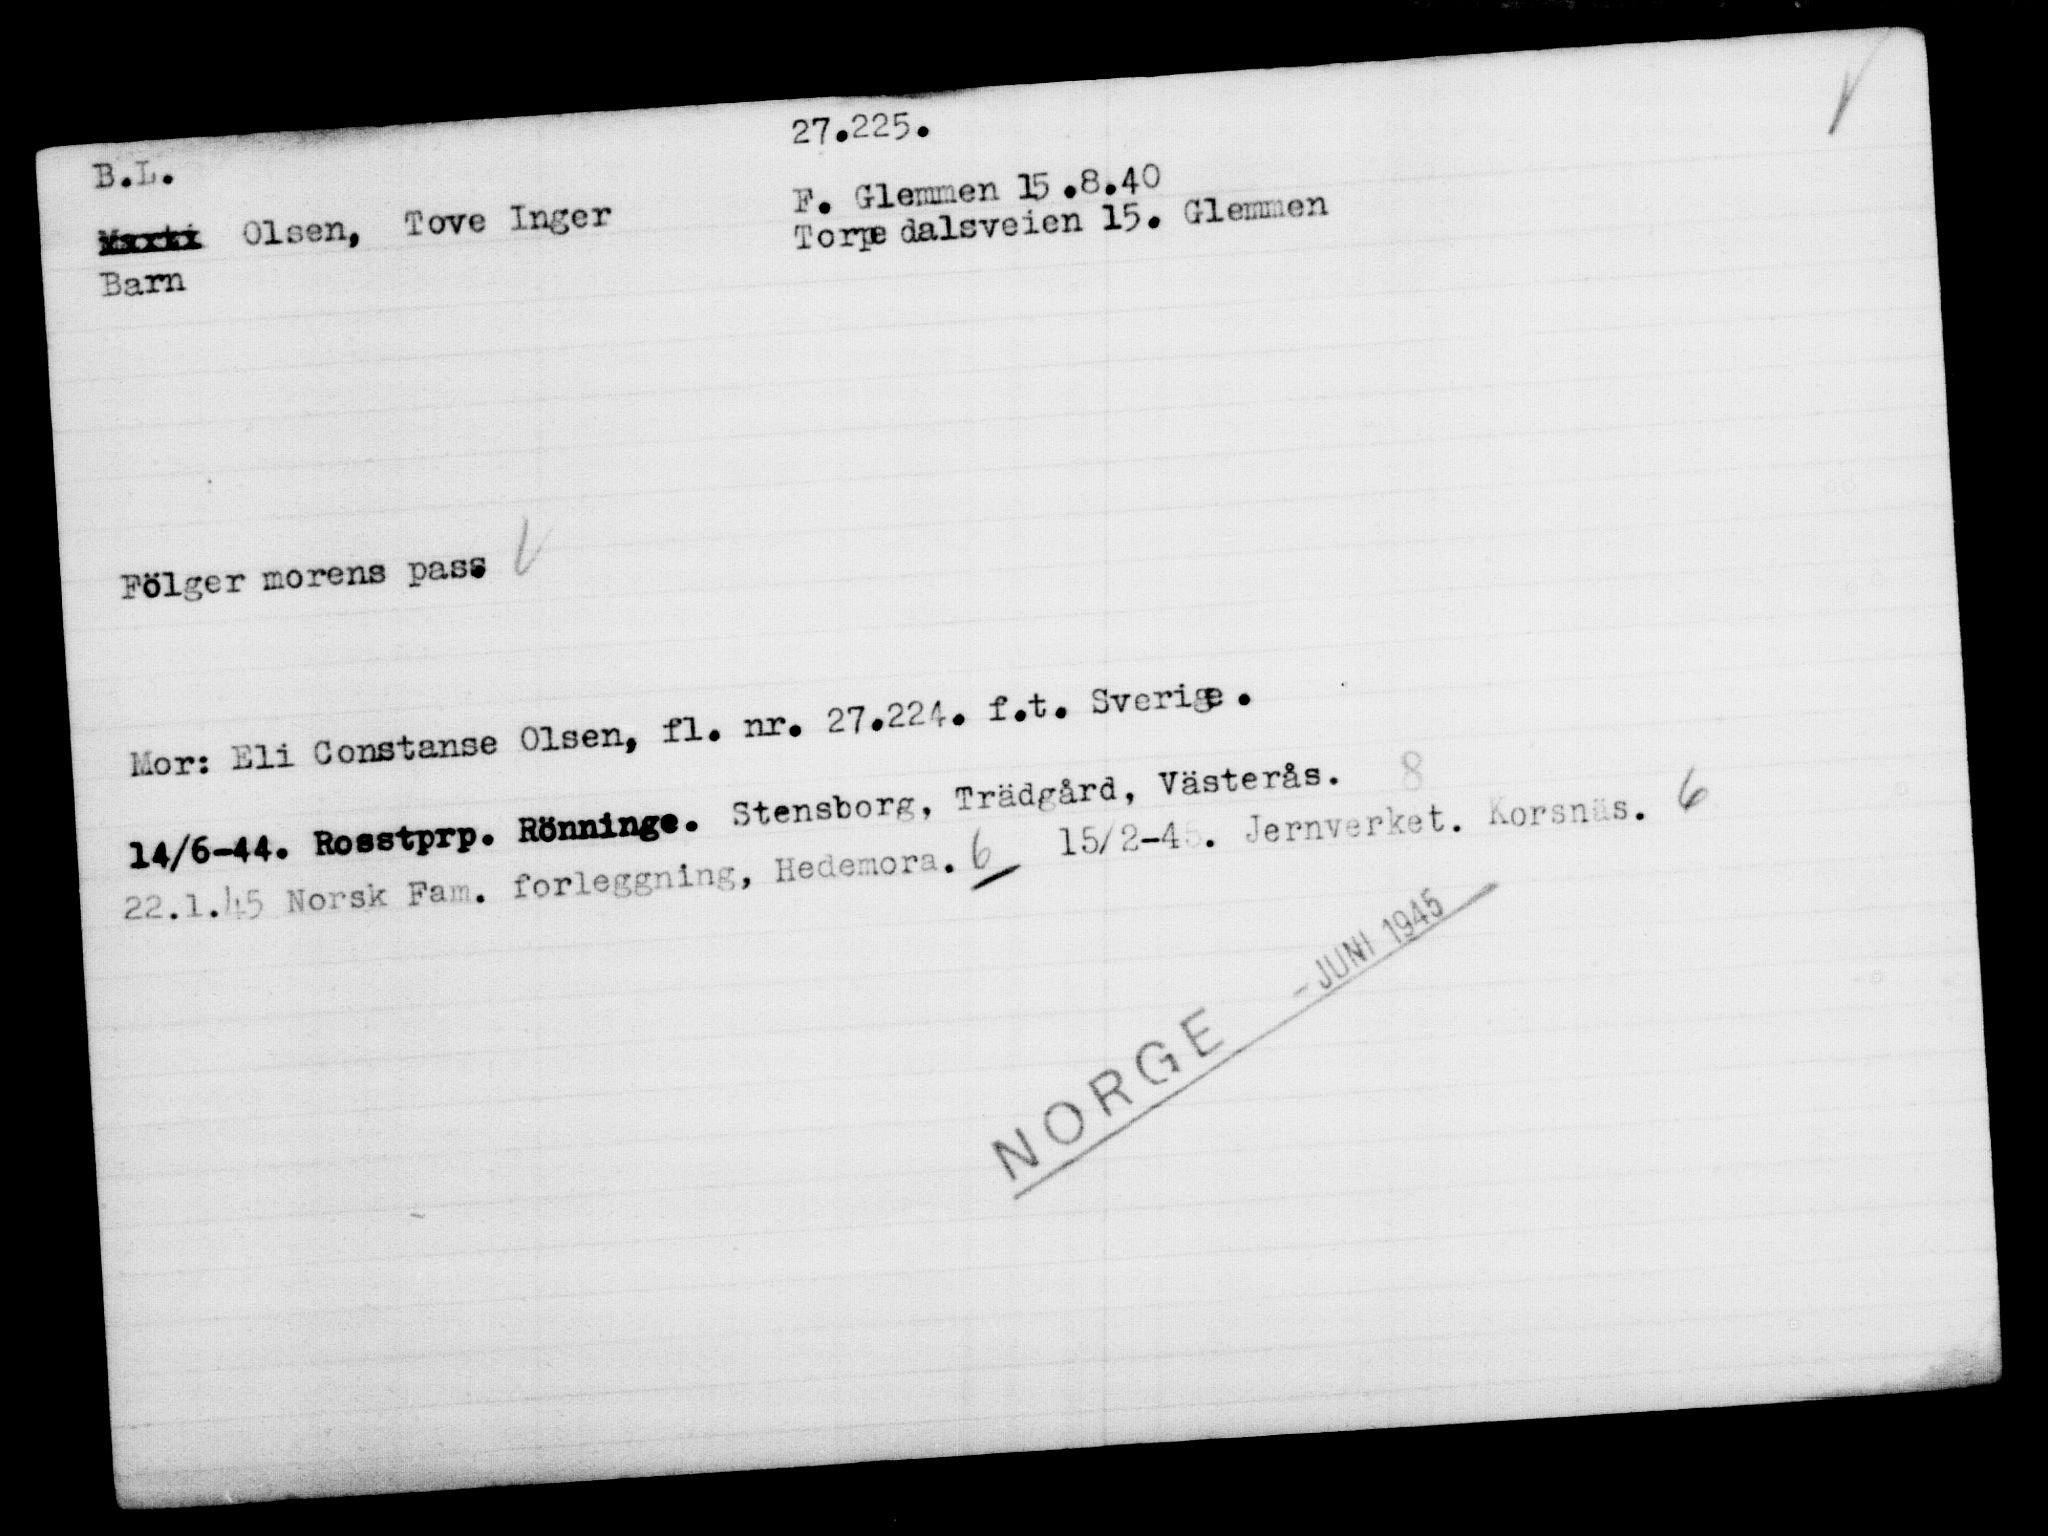 B.L.
27.225.
Olsen, Tove Inger
F. Glemmen 15.8.40
Barn
Torpedalsveien 15. Glemmen
Fölger morens pass.
Mor: Eli Constanse Olsen, fl. nr. 27.224. f.t. Sverige.
14/6-44. Rosstprp. Rönninge. Stensborg, Trädgård, Västerås. 8
22.1.45 Norsk Fam. forleggning, Hedemora. 6 15/2-45. Jernverket. Korsnäs. 6
NORGE - JUNI 1945